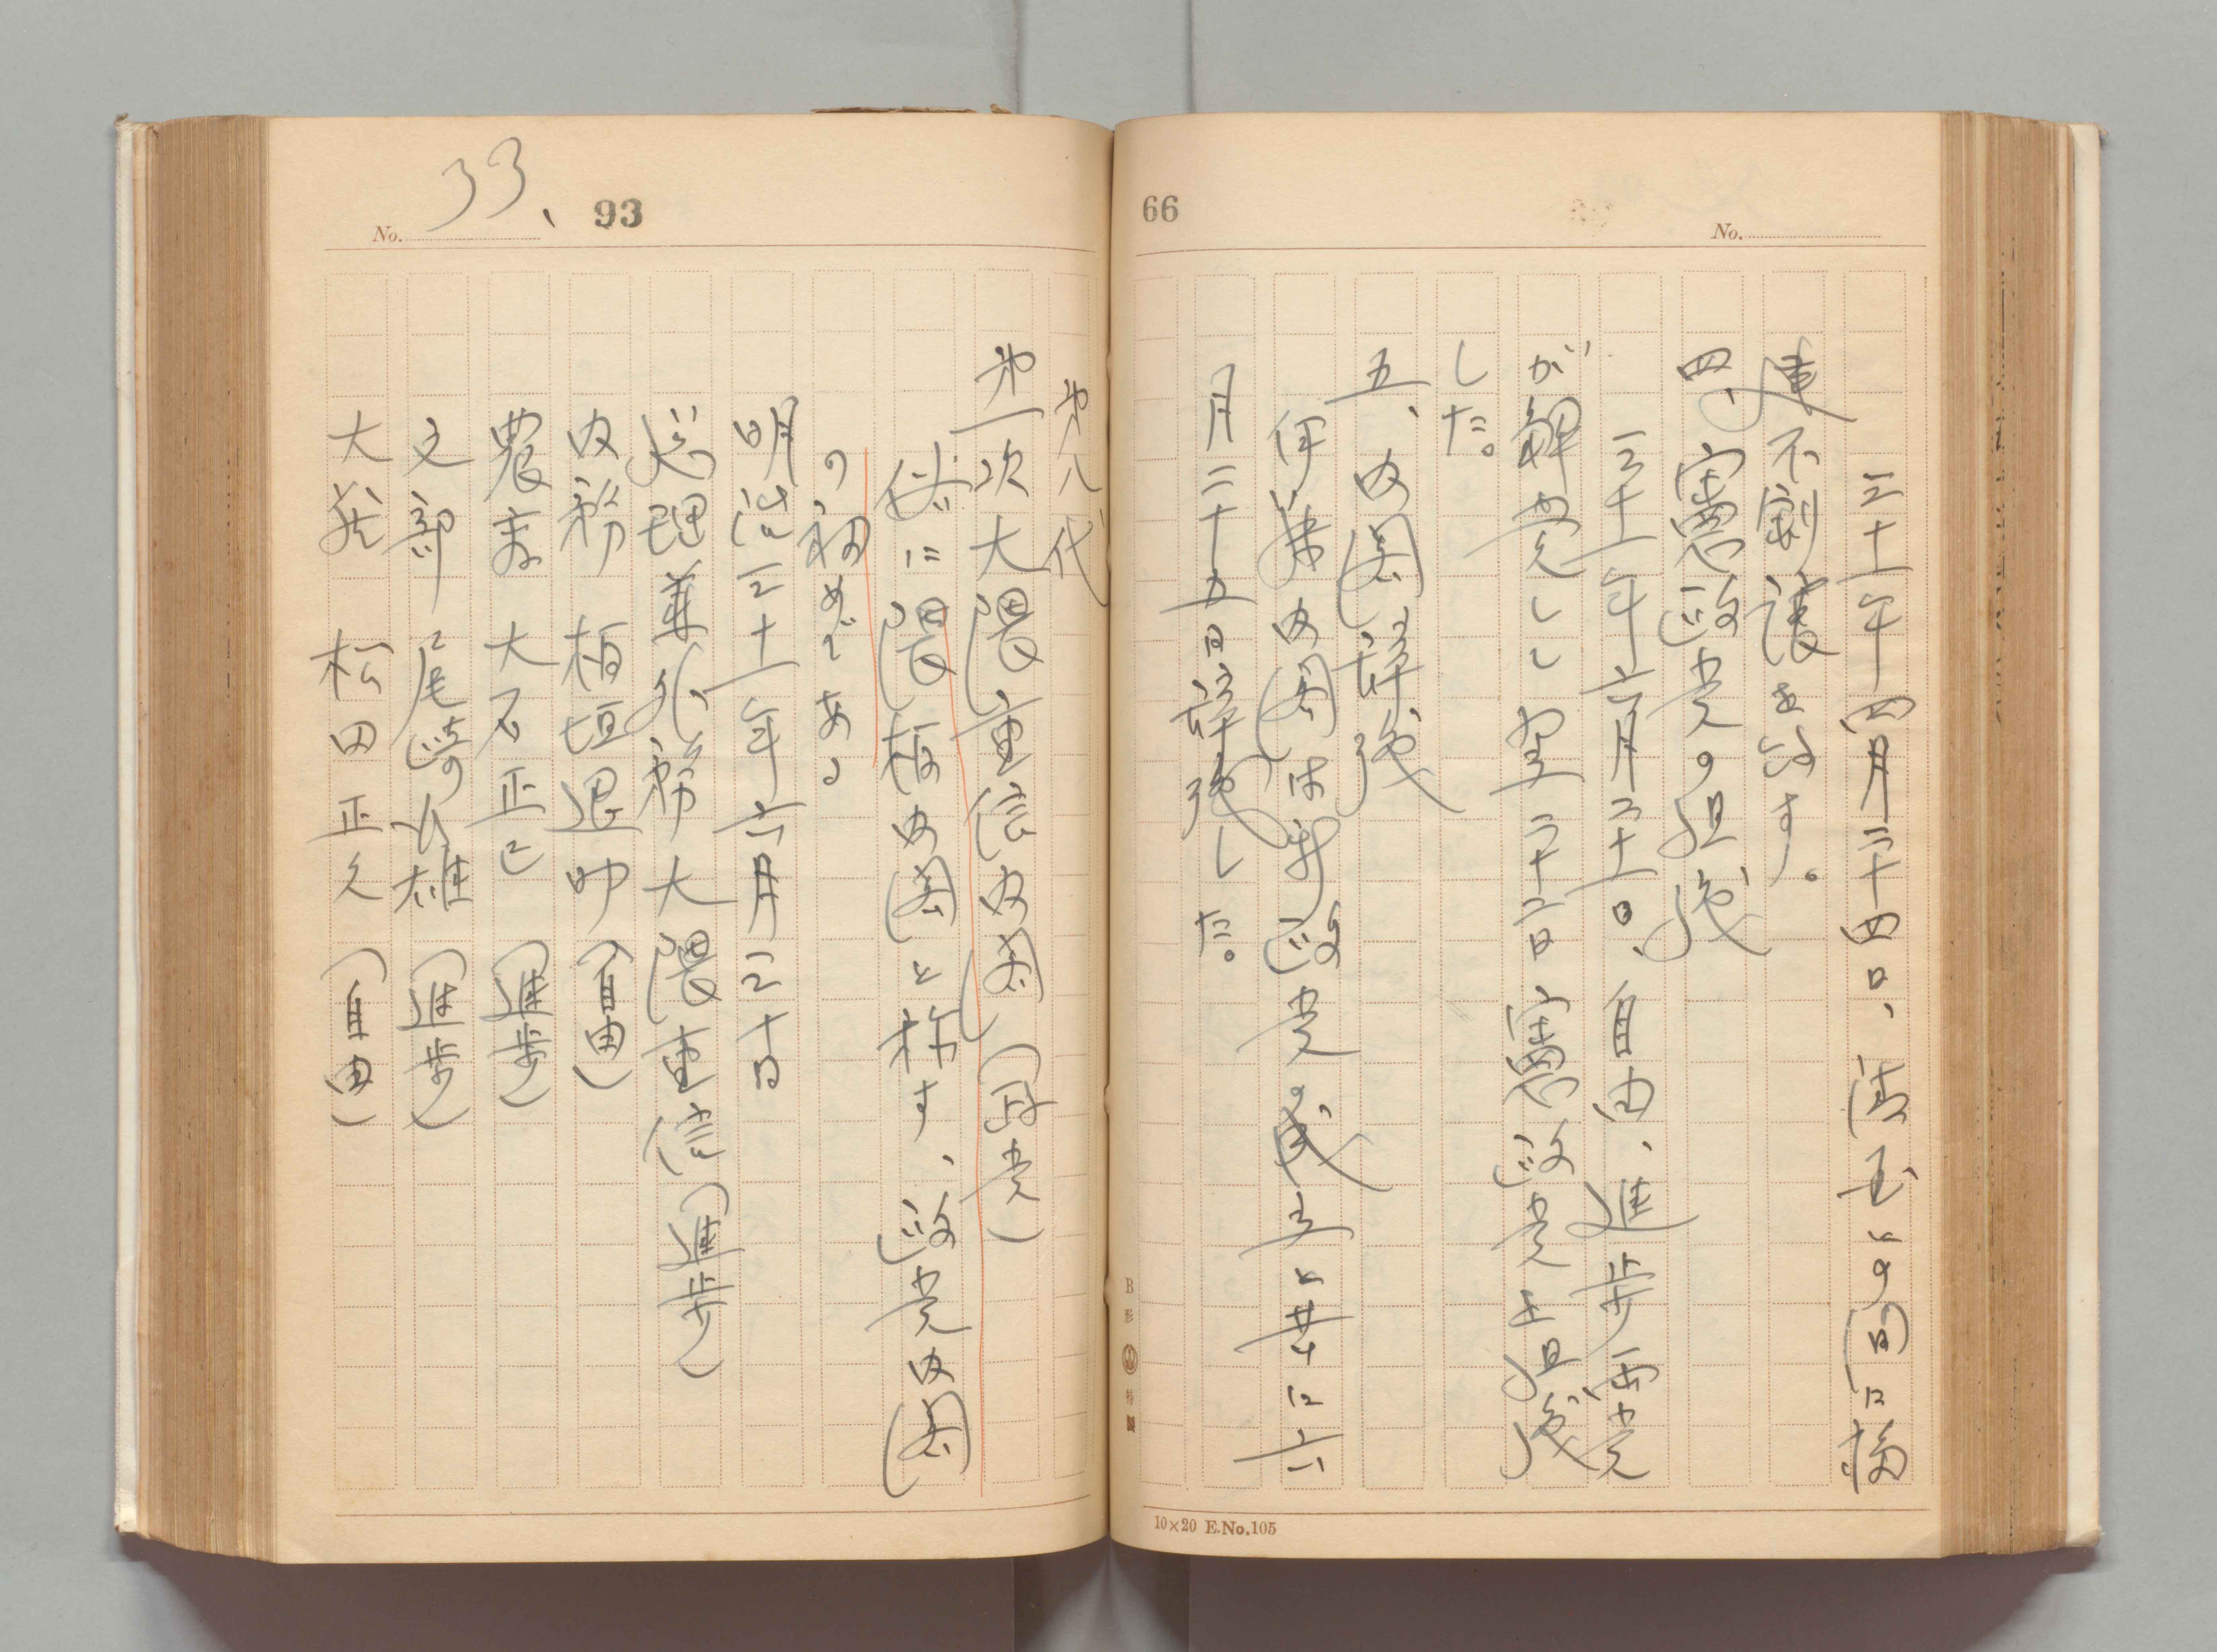 66
No.
三十一年四月二十四日、清国との間に福
建不割譲を約す。
四、憲政党の組織
三十一年六月二十一日、自由、進歩両党
が解党して翌二十二日憲政党を組織
した。
五、内閣辞職
伊藤内閣は新政党の成立と共に六
月二十五日辞職した。
B形
特製
10×20 E.No.105
No. 33、
93
第八代
第一次大隈重信内閣(政党)
俗に隈板内閣と称す、政党内閣
の初めである
明治三十一年六月三十日
総理兼外務 大隈重信(進歩)
内務 板垣退助(自由)
農商 大石正巳(進歩)
文部 尾崎行雄(進歩)
大蔵 松田正久(自由)